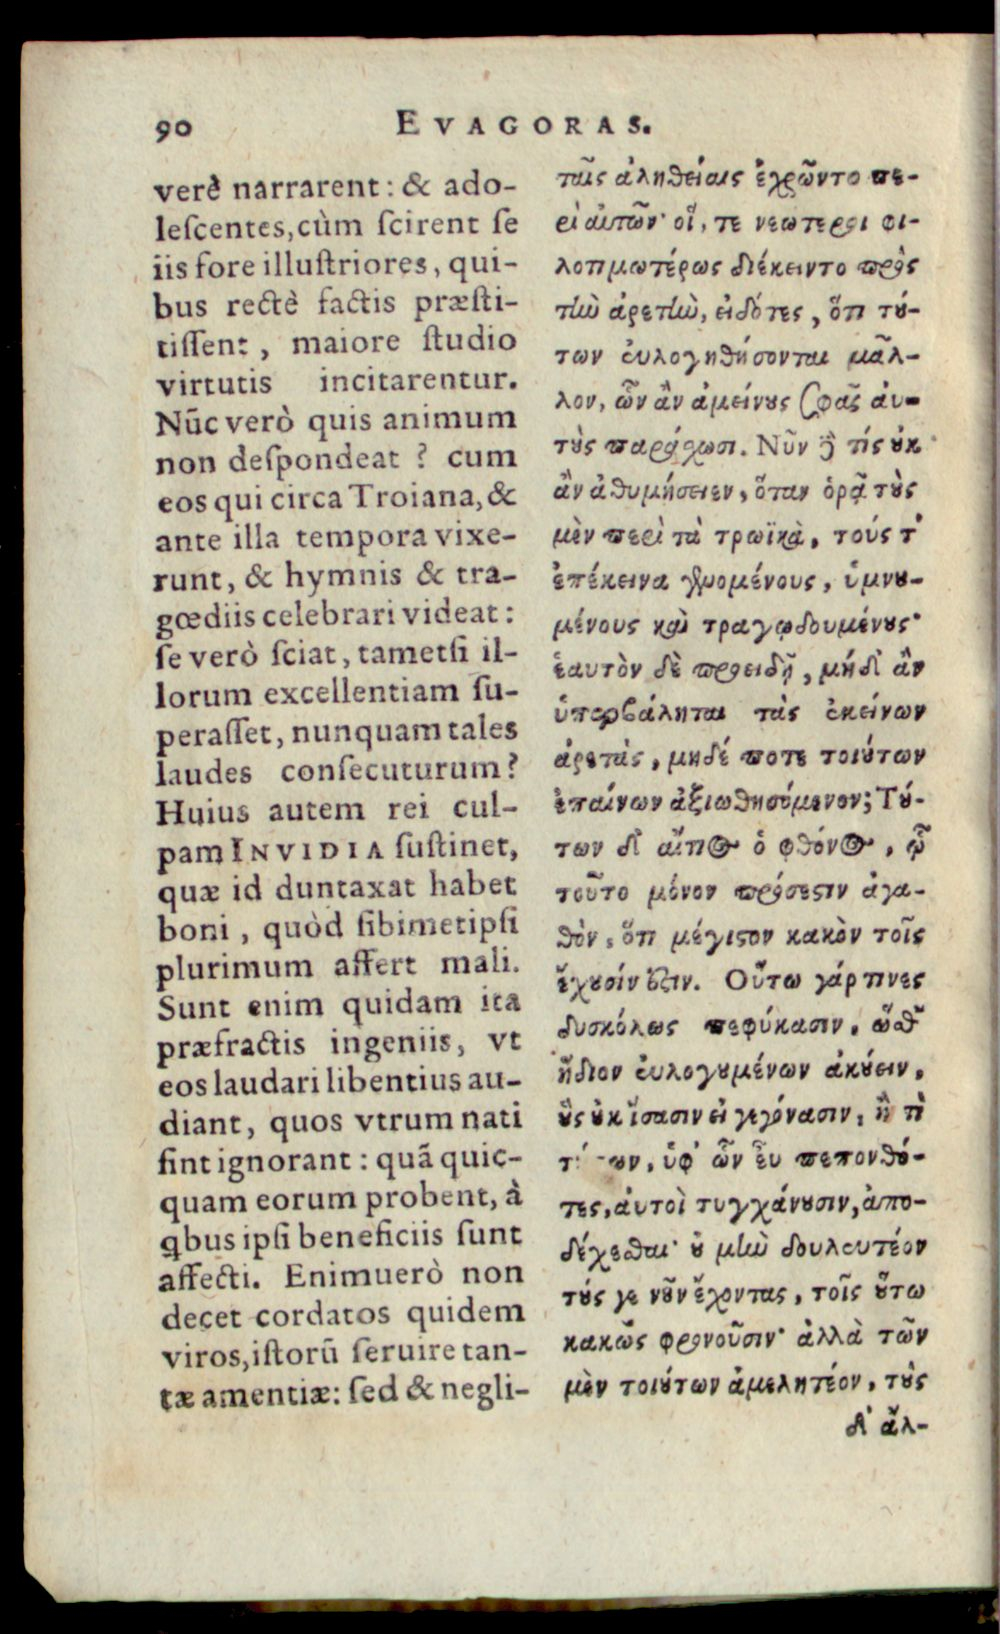 90 EVAGORAS.
verè narrarent: & ado-
leſcentes, cùm ſcirent ſe
iis fore illuſtriores, qui-
bus rectè factis præſti-
tiſſent, maiore ſtudio
virtutis incitarentur.
Nũc verò quis animum
non deſpondeat ? cum
eos qui circa Troiana, &
ante illa tempora vixe-
runt, & hymnis & tra-
gœdiis celebrari videat:
ſe verò ſciat, tametſi il-
lorum excellentiam ſu-
peraſſet, nunquam tales
laudes conſecuturum?
Huius autem rei cul-
pam INVIDIA ſuſtinet,
quæ id duntaxat habet
boni, quòd ſibimetipſi
plurimum affert mali.
Sunt enim quidam ita
præfractis ingeniis, vt
eos laudari libentius au-
diant, quos vtrum nati
ſint ignorant: quã quic-
quam eorum probent, à
qbus ipſi beneficiis ſunt
affecti. Enimuerò non
decet cordatos quidem
viros, iſtorũ ſeruire tan-
tæ amentiæ: ſed & negli-
ταῖς ἀληθείαις ἐχρῶντο πε-
ρὶ αὐτῶν· οἵ, τε νεωτεροι φι-
λοτιμωτέρως διέκειντο πρὸς
τὴν ἀρετὴν, εἰδότες, ὅτι τού-
των εὐλογηθήσονται μᾶλ-
λον, ὧν ἂν ἀμείνους σφᾶς αὐ-
τοὺς παράσχωσι. Νῦν δὲ τίς οὐκ
ἂν ἀθυμήσειεν, ὅταν ὁρᾷ τοὺς
μὲν περὶ τὰ τρωϊκὰ, τούς τ'
ἐπέκεινα γενομένους, ὑμνου-
μένους καὶ τραγῳδουμένους·
ἑαυτὸν δὲ προειδῇ, μήδ' ἂν
ὑπερβάληται τὰς ἐκείνων
ἀρετὰς, μηδέ ποτε τοιούτων
ἐπαίνων ἀξιωθησόμενον; Τού-
των δ' αἴτιος ὁ φθόνος, ᾧ
τοῦτο μόνον πρόσεστιν ἀγα-
θὸν, ὅτι μέγιστον κακὸν τοῖς
ἔχουσίν ἐστιν. Οὕτω γάρ τινες
δυσκόλως πεφύκασιν, ὥσθ'
ἥδιον εὐλογουμένων ἀκούειν,
οὓς οὐκ ἴσασιν εἰ γεγόνασιν, ἢ τι
ὑφ' ὧν εὖ πεπονθό-
τες, αὐτοὶ τυγχάνουσιν, ἀπο-
δέχεσθαι· οὐ μὴν δουλευτέον
τούς γε νοῦν ἔχοντας, τοῖς οὕτω
κακῶς φρονοῦσιν· ἀλλὰ τῶν
μὲν τοιούτων ἀμελητέον, τοὺς
δ' ἄλ-